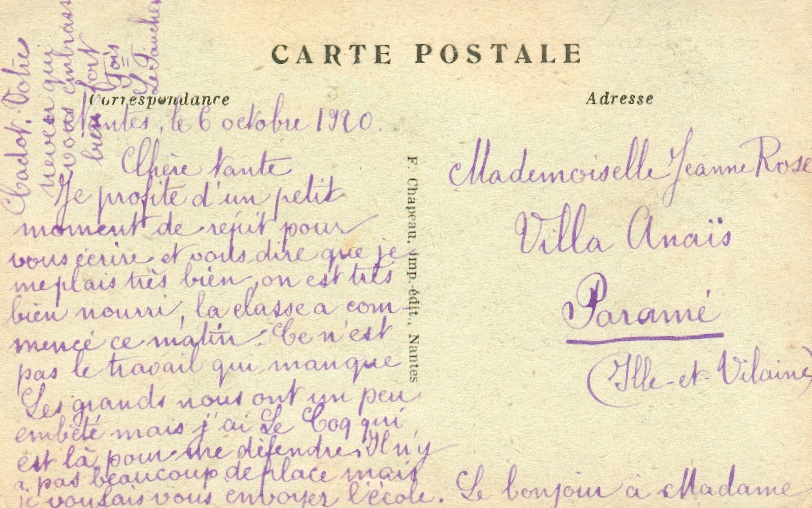 CARTE POSTALE
Correspondance
Adresse
Nantes, le 6 octobre 1920.
Chère tante
Je profite d'un petit
moment de répit pour
vous écrire et vous dire que je
me plais très bien, on est très
bien nourri, la classe a com-
mencé ce matin. Ce n'est
pas le travail qui manque
Les grands nous ont un peu
embêté mais j'ai Le Coq qui
est là pour me défendre. Il n'y
a pas beaucoup de place mais
je voulais vous envoyer l'école. Le bonjour à Madame
Chadot. Votre
neveu qui
vous embrasse
bien fort
F. Chapeau, imp.-édit., Nantes
Mademoiselle Jeanne Rose
Villa Anaïs
Paramé
(Ille-et-Vilaine)